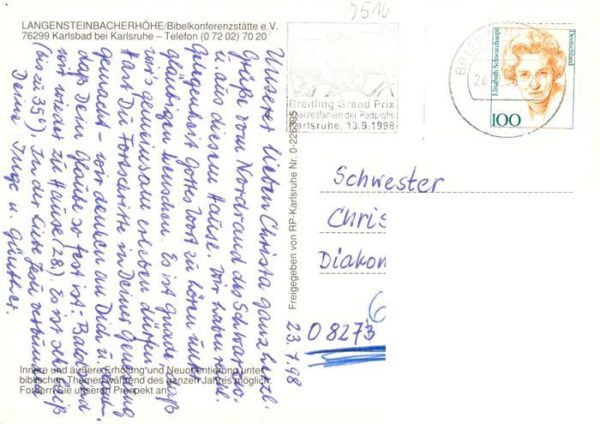 LANGENSTEINBACHERHÖHE/Bibelkonferenzstätte e.V.
76299 Karlsbad bei Karlsruhe – Telefon (0 72 02) 70 20
9516
Breitling Grand Prix
Paarzeitfahren der Radprofis
Karlsruhe, 13.9.1998
BRIEF
24
Deutschland
Elisabeth Schwarzhaupt
100
Unserer lieben Christa ganz herzl.
Grüße vom Nordrand des Schwarzwo.
u. aus diesem Hause. Wir haben viel
Gelegenheit Gottes Wort zu hören
gläubigen Menschen. Es ist ganz
wir's gemeinsam erleben dürfen
Hast Du Fortschritte in Deiner
gemacht - wir denken an Dich u.
daß Dein Glaube so fest ist. Bald
wir wieder zu Hause (28.) Es ist sehr heiß
(bis zu 35°). In der Liebe Jesu verbunden
Deine Inge u. Günther.
23.7.98
Freigegeben von RP-Karlsruhe Nr. 0-226395
Schwester
Chris
Diakon
6
08273
Innere und äußere Erholung und Neuorientierung unter
biblischen Themen während des ganzen Jahres möglich.
Fordern Sie unseren Prospekt an.